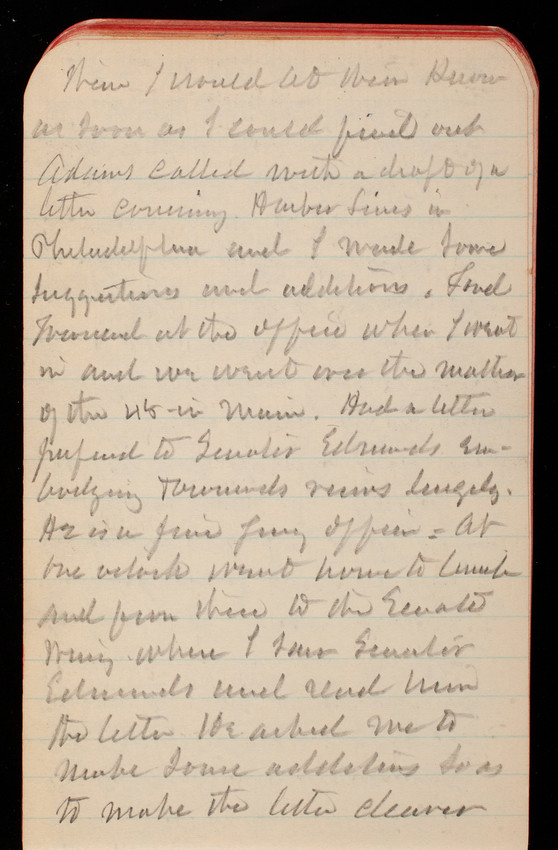 them I would let them know
as soon as I could find out
Adams called with a draft of a
letter concerning Harbor Lines in
Philadelphia and I made some
suggestions and additions. Found
Townsend at the office when I went
in and we went over the matter
of the in main. Had a letter
prepared to Senator Edmunds em-
bodying Townsends views largely.
He is a fine young officer = At
one oclock went home to lunch
and from there to the Senate
wing where I saw Senator
Edmunds and read him
the letter He asked me to
make some additions so as
to make the letter clearer